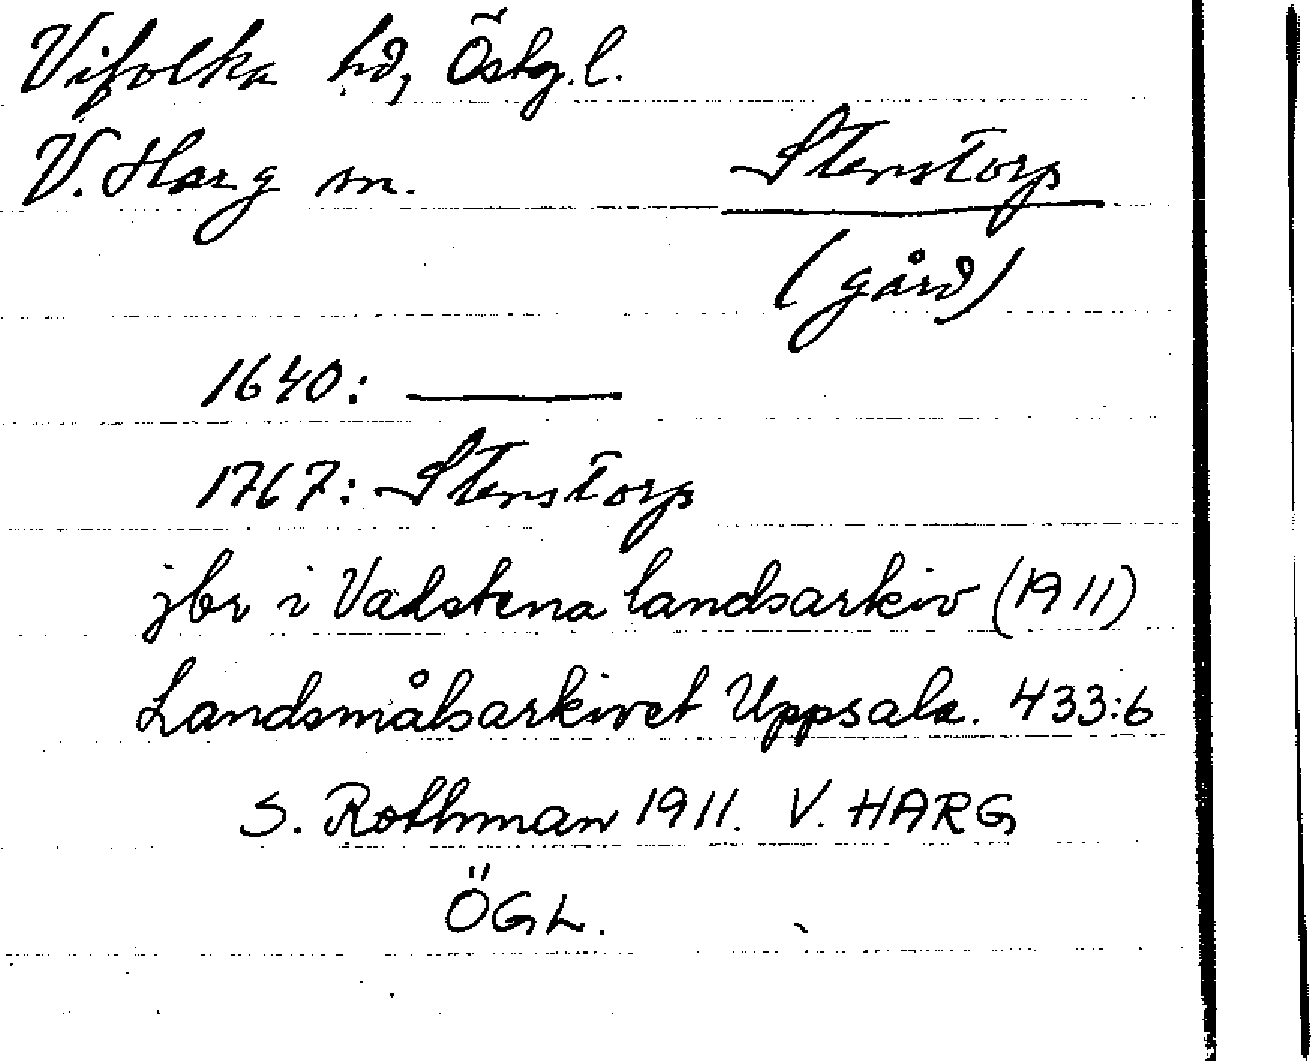 Vifolka hd, Östg.l.
V. Harg sn. Stenstorp
(gård)
1640: ———
1767: Stenstorp
jbr i Vadstena landsarkiv (1911)
Landsmålsarkivet Uppsala. 433:6
S. Rothman 1911. V. HARG
ÖGL.